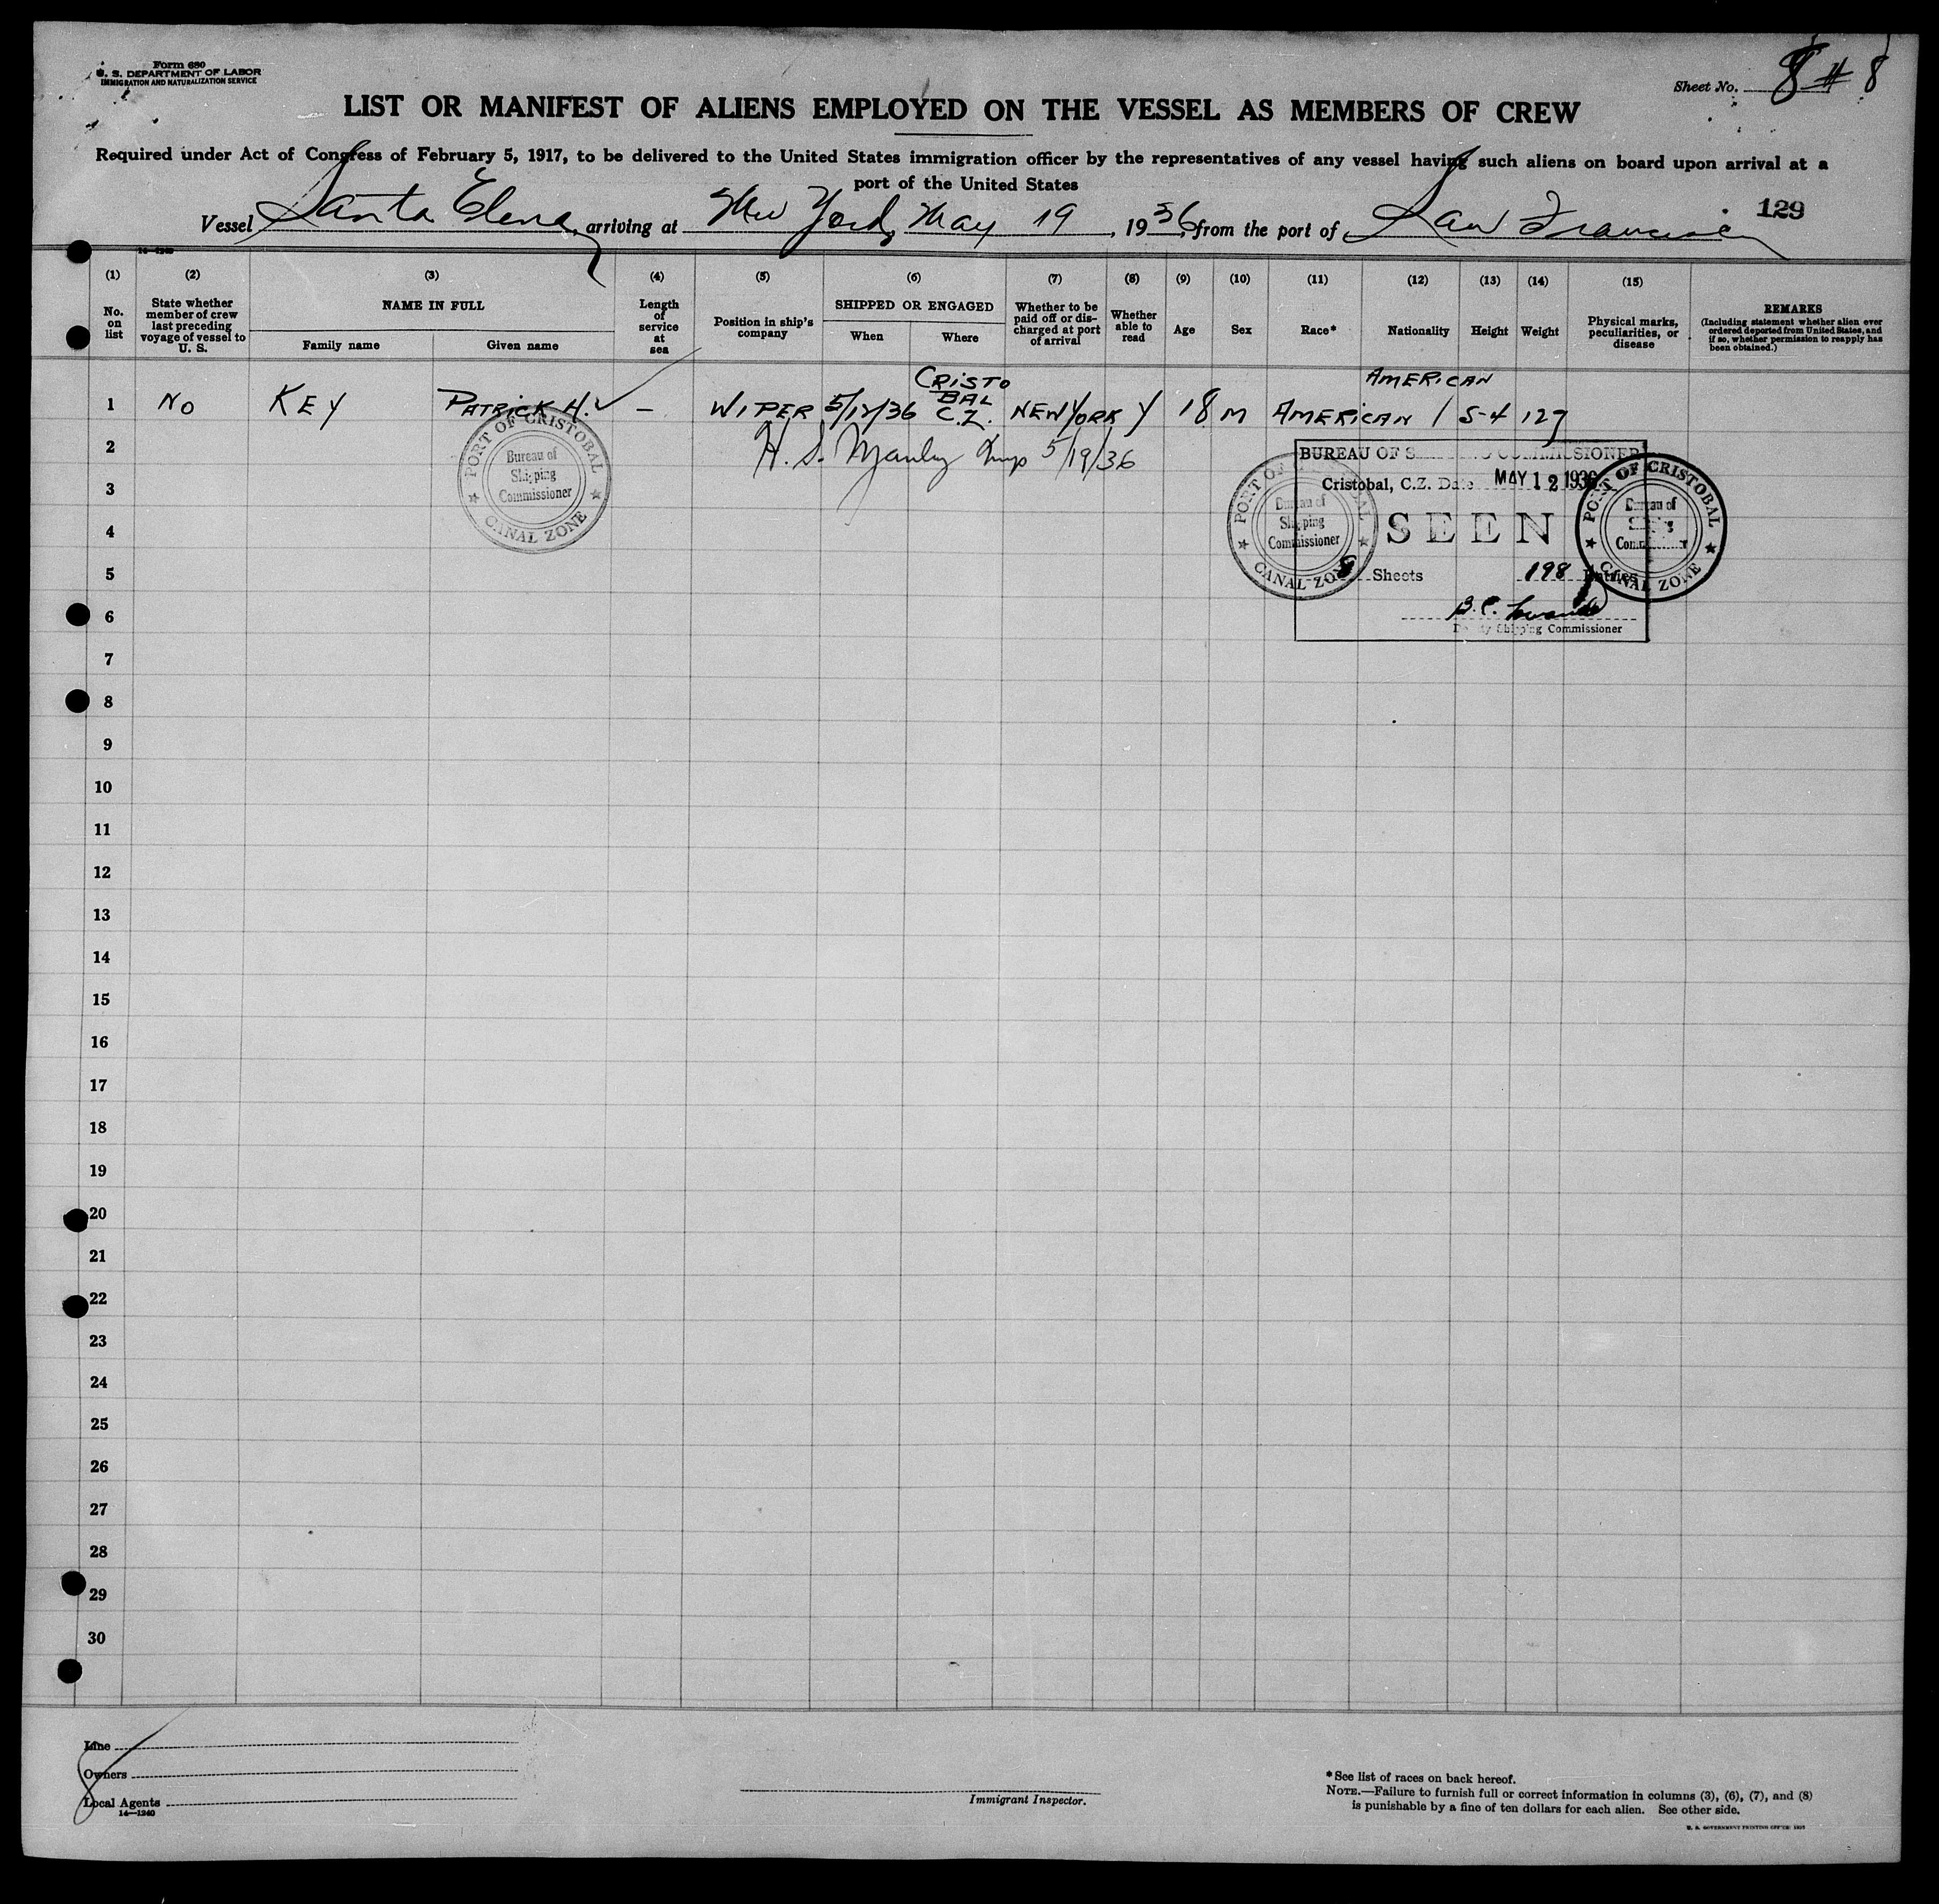 Form 680
U. S. DEPARTMENT OF LABOR
IMMIGRATION AND NATURALIZATION SERVICE
Sheet No. 8 # 8
LIST OR MANIFEST OF ALIENS EMPLOYED ON THE VESSEL AS MEMBERS OF CREW
Required under Act of Congress of February 5, 1917, to be delivered to the United States immigration officer by the representatives of any vessel having such aliens on board upon arrival at a
port of the United States
129
Vessel Santa Elena, arriving at New York, May 19, 1936, from the port of San Francisco
14—1240
(1) (2) (3) (4) (5) (6) (7) (8) (9) (10) (11) (12) (13) (14) (15)
No. on list
State whether member of crew last preceding voyage of vessel to U. S.
NAME IN FULL
Family name
Given name
Length of service at sea
Position in ship's company
SHIPPED OR ENGAGED
When
Where
Whether to be paid off or discharged at port of arrival
Whether able to read
Age
Sex
Race*
Nationality
Height
Weight
Physical marks, peculiarities, or disease
REMARKS
(Including statement whether alien ever ordered deported from United States, and if so, whether permission to reapply has been obtained.)
1 NO KEY PATRICK H. ✓ — WIPER 5/12/36 CRISTOBAL C.Z. NEW YORK Y 18 M AMERICAN AMERICAN 5-4 127
2 H. S. Manley Insp 5/19/36
PORT OF CRISTOBAL
Bureau of
Shipping
Commissioner
CANAL ZONE
BUREAU OF S COMMISSIONER
Cristobal, C.Z. Date MAY 12 1936
SEEN
8 Sheets 198 Entries
B. C.
Deputy Shipping Commissioner
PORT OF CRISTOBAL
Bureau of
Shipping
Commissioner
CANAL ZONE
PORT OF CRISTOBAL
Bureau of
CANAL ZONE
3
4
5
6
7
8
9
10
11
12
13
14
15
16
17
18
19
20
21
22
23
24
25
26
27
28
29
30
Line
Owners
Local Agents
14—1240
8
Immigrant Inspector.
* See list of races on back hereof.
NOTE.—Failure to furnish full or correct information in columns (3), (6), (7), and (8)
is punishable by a fine of ten dollars for each alien. See other side.
U. S. GOVERNMENT PRINTING OFFICE: